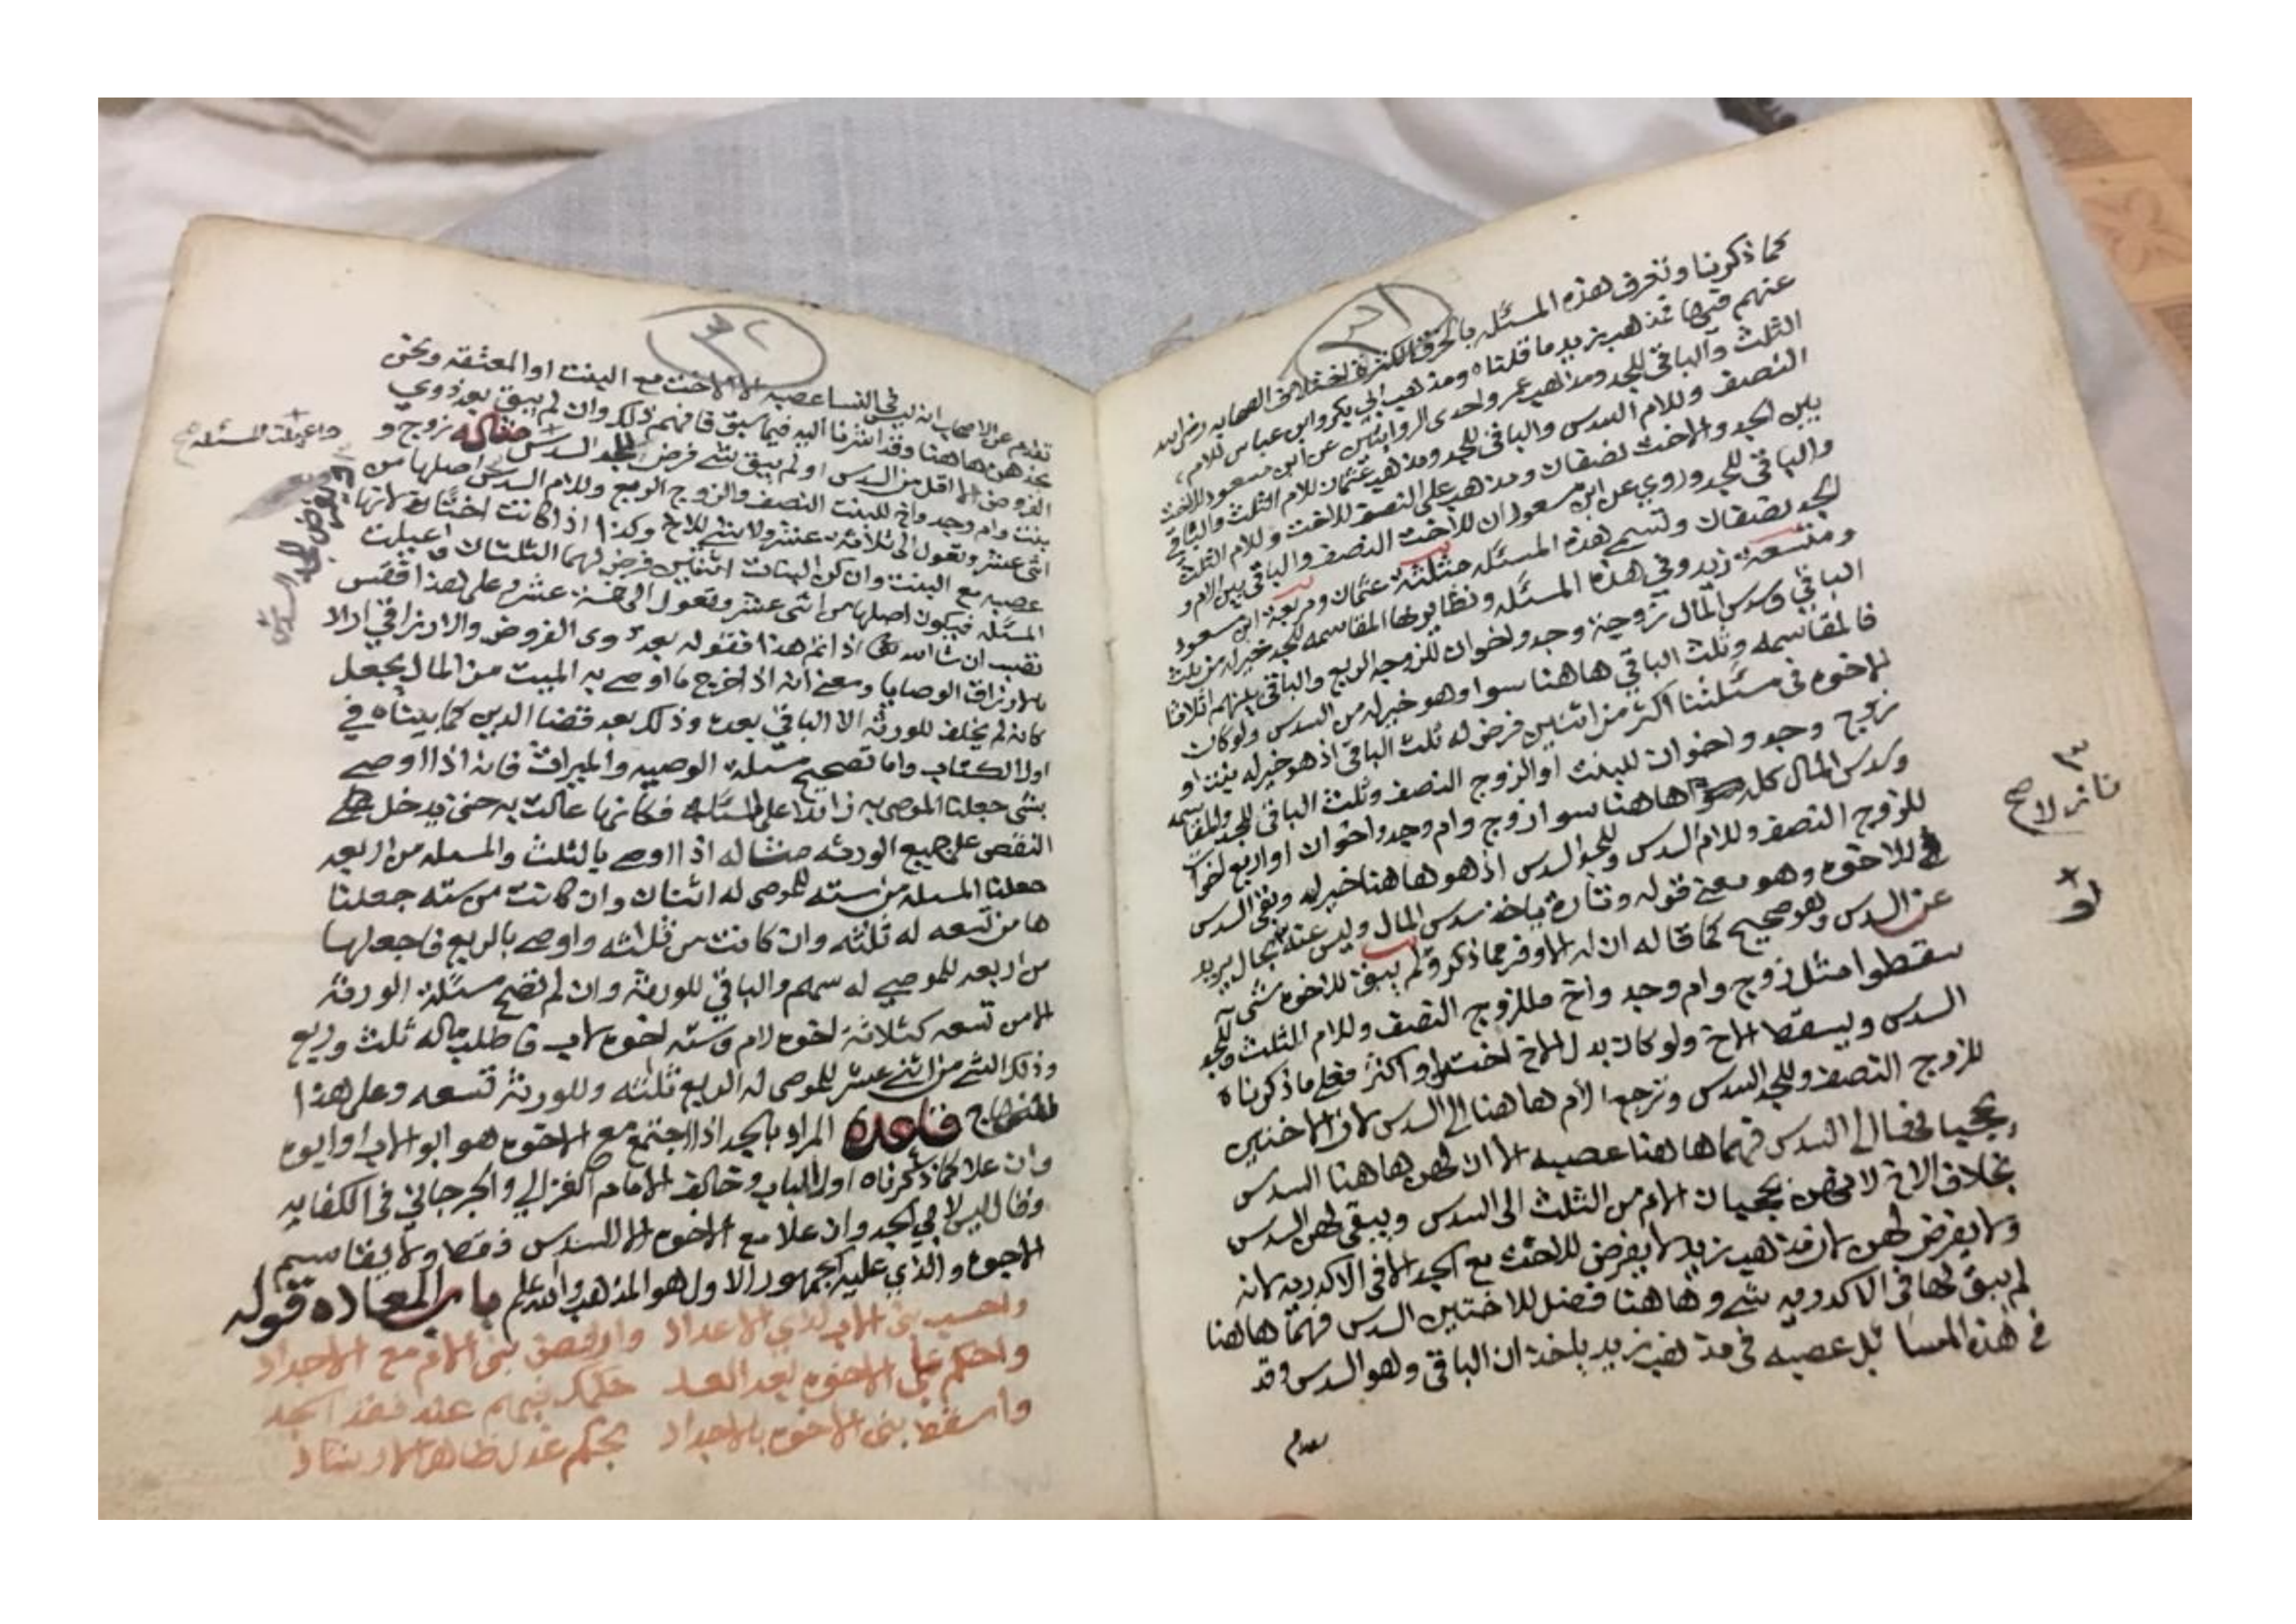 ٣١
كما ذكرنا وتعرف هذه المسئله بالخرقا لكثرة اختلاف الصحابه رضي الله
عنهم فيها فذهب زيد ما قلناه ومذهب ابي بكر وابن عباس للام
الثلث والباقي للجد ومذهب عمر واحدى الروايتين عن ابن مسعود للاخت
النصف وللام السدس والباقي للجد ومذهب عثمان للام الثلث والباقي
بين الجد والاخت نصفان ومذهب علي النصف للاخت وللام الثلث
والباقي للجد وروي عن ابن مسعود ان للاخت النصف والباقي بين الام و
الجد نصفان وتسم هذه المسئله مثلثة عثمان ومربعة ابن مسعود
ومتسعة زيد وفي هذه المسئله ونظايرها المقاسمه للجد خير له من ثلث
الباقي وسدس المال زوجة وجد واخوان للزوجه الربع والباقي بينهم اثلاثا
فالمقاسمه وثلث الباقي هاهنا سوا وهو خير له من السدس ولو كان
الاخوه في مسئلتنا اكثر من اثنين فرض له ثلث الباقي اذ هو خير له بنت او
زوج وجد واخوان للبنت او الزوج النصف وثلث الباقي للجد والمقاسمه
وسدس المال كل هاهنا سوا زوج وام وجد واخوان او اربع اخوات
للزوج النصف وللام السدس وللجد السدس اذ هو هاهنا خير له وبقي السدس
للاخوه وهو معنى قوله وتارة ياخذ سدس المال وليس عنه بحال يريد
عن السدس وهو صحيح كما قاله ان له الاوفر مما ذكر ولم يبق للاخوه شي
سقطوا مثل زوج وام وجد واخ فللزوج النصف وللام الثلث وللجد
السدس ويسقط الاخ ولو كان بدل الاخ اختين او اكثر فعلى ما ذكرناه
للزوج النصف وللجد السدس وترجع الام هاهنا الى السدس لان الاختين
يحجبانها الى السدس فهما هاهنا عصبه الا ان لهن هاهنا السدس
بخلاف الاخ لانهن يحجبان الام من الثلث الى السدس ويبقى لهن السدس
ولا يفرض لهن لان مذهب زيد لا يفرض للاخت مع الجد الا في الاكدريه لانه
لم يبق لها في الاكدريه شي وهاهنا فضل للاختين السدس فهما هاهنا
في هذه المسائل عصبه في مذهب زيد ياخذان الباقي وهو السدس وقد
٣٢
تقدم عن الاصحاب انه ليس في النسا عصبه الا الاخت مع البنت او المعتقه ونحن
نذهن هاهنا وقد اشرنا اليه فيما سبق فافهم ذلك وان لم يبق بعد ذوي
الفروض الا اقل من السدس او لم يبق شي فرض للجد السدس مثاله زوج و
بنت وام وجد واخ للبنت النصف والزوج الربع وللام السدس اصلها من
اثنى عشر وتعول الى ثلاثة عشر ولا شي للاخ وكذا اذا كانت اختا لانها
عصبه مع البنت وان كن البنات اثنتين فرض لهما الثلثان و اعيلت
المسئله فيكون اصلها من اثنى عشر وتعول الى خمسة عشر وعلى هذا فقس
تصب ان شا الله تعالى اذا تم هذا فقوله بعد ذوى الفروض والارزاق اراد
بالارزاق الوصايا ومعنى انه اذا اخرج ما اوصى به الميت من المال يجعل
كانه لم يخلف للورثه الا الباقي بعده وذلك بعد قضا الدين كما بيناه في
اول الكتاب واما تصحيح مسئلة الوصيه والميراث فانه اذا اوصى
بشي جعلنا الموصى به زايدا على المسئله فكانها عالت به حتى يدخل
النقص على جميع الورثه مثاله اذا اوصى بالثلث والمسله من اربعه
جعلنا المسله من سته للموصى له اثنان وان كانت من سته جعلنا
ها من تسعه له ثلثه وان كانت من ثلثه واوصى بالربع فاجعلها
من اربعه للموصى له سهم والباقي للورثه وان لم تصح مسئلة الورثه
الا من تسعه كثلاثة اخوه لام وسته اخوه لاب فاطلب ماله ثلث وربع
وذلك الشي من اثنى عشر للموصى له الربع ثلثه وللورثه تسعه وعلى هذا
قاعدة المراد بالجد اذا اجتمع مع الاخوه هو ابو الاب او ابوه
وان علا كما ذكرناه اول الباب وخالف الامام الغزالي والجرجاني في الكفايه
وقال ليس لابي الجد وان علا مع الاخوه الا السدس فقط ولا يقاسم
الاخوه والذي عليه الجمهور الاول هو المذهب والله اعلم باب المعاده قوله
واحسب بني الاب لدى الاعداد وارفض بني الام مع الاجداد
واحكم على الاخوه بعد العد حكمك فيهم عند فقد الجد
واسقط بني الاخوه بالاجداد بحكم عدل ظاهر الارشاد
واعيلت المسئله صح
ويفرض للجد السدس